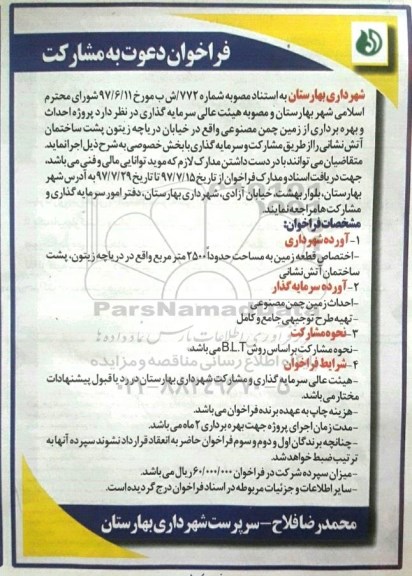 فراخوان دعوت به مشارکت
شهرداری بهارستان به استناد مصوبه شماره ۷۷۲/ش ب مورخ ۹۷/۶/۱۱ شورای محترم
اسلامی شهر بهارستان و مصوبه هیئت عالی سرمایه گذاری در نظر دارد پروژه احداث
و بهره برداری از زمین چمن مصنوعی واقع در خیابان دریاچه زیتون پشت ساختمان
آتش نشانی را از طریق مشارکت و سرمایه گذاری با بخش خصوصی به شرح ذیل اجرا نماید.
متقاضیان می توانند با در دست داشتن مدارک لازم که موید توانایی مالی و فنی می باشد،
جهت دریافت اسناد و مدارک فراخوان از تاریخ ۹۷/۷/۱۵ تا تاریخ ۹۷/۷/۲۹ به آدرس شهر
بهارستان، بلوار بهشت، خیابان آزادی، شهرداری بهارستان، دفتر امور سرمایه گذاری و
مشارکت ها مراجعه نمایند.
مشخصات فراخوان:
۱- آورده شهرداری
-اختصاص قطعه زمین به مساحت حدوداً ۲۵۰۰ متر مربع واقع در دریاچه زیتون، پشت
ساختمان آتش نشانی
۲- آورده سرمایه گذار
-احداث زمین چمن مصنوعی
-تهیه طرح توجیهی جامع و کامل
۳- نحوه مشارکت
-نحوه مشارکت بر اساس روش B.L.T می باشد.
۴- شرایط فراخوان
-هیئت عالی سرمایه گذاری و مشارکت شهرداری بهارستان در رد یا قبول پیشنهادات
مختار می باشد.
-هزینه چاپ به عهده برنده فراخوان می باشد.
-مدت زمان اجرای پروژه جهت بهره برداری ۲ ماه می باشد.
-چنانچه برندگان اول و دوم و سوم فراخوان حاضر به انعقاد قرارداد نشوند سپرده آنها به
ترتیب ضبط خواهد شد.
-میزان سپرده شرکت در فراخوان ۶۰/۰۰۰/۰۰۰ ریال می باشد.
-سایر اطلاعات و جزئیات مربوطه در اسناد فراخوان درج گردیده است.
محمدرضا فلاح - سرپرست شهرداری بهارستان
ParsNamadData
۰۲۱-۸۸۳۴۹۶۷۰-۵